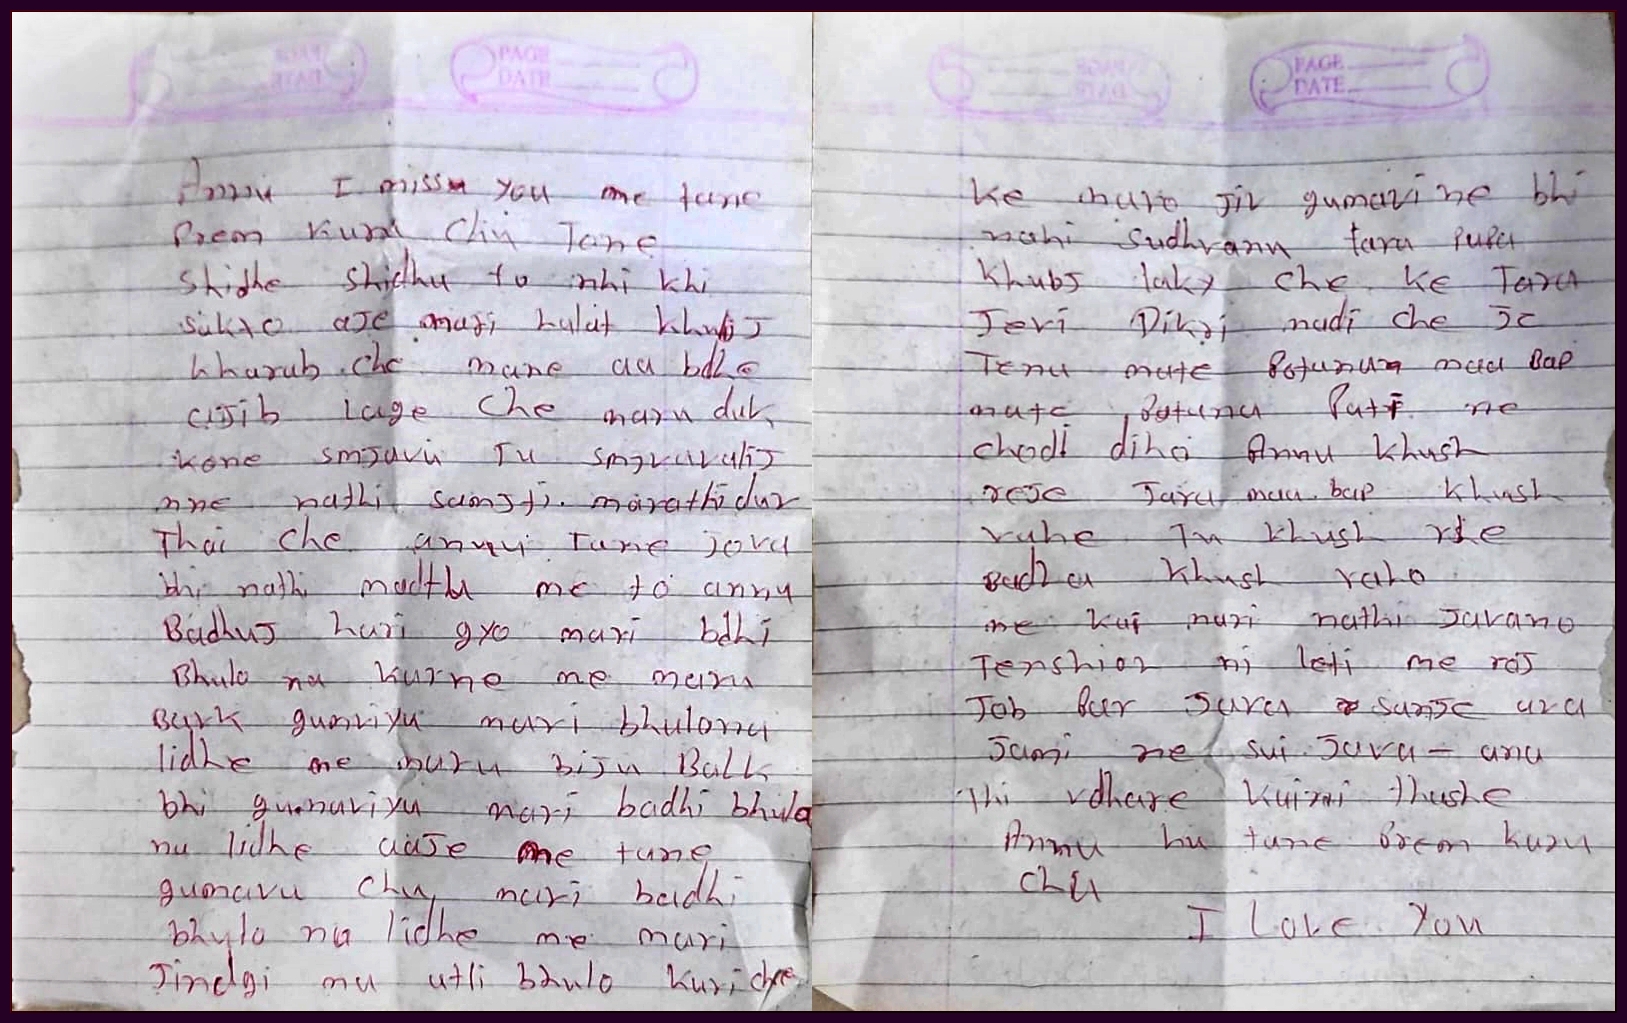 PAGE
DATE
Annu I miss you me tane
Prem Karu Chu Tane
Shidhe Shidhu to nhi khi
Sakto aje mari halat khubij
kharab che mane aa bdhe
ajib lage Che maru dukh
kone smjavu Tu smjvavalij
nne nathi samjti. marathi dur
Thai Che annu Tane jova
bhi nathi madtu me to annu
Badhuj hari gyo mari bdhi
Bhulo na karne me maru
Bark gumviyu mari bhulona
lidhe me maru biju Balk
bhi gumaviyu mari badhi bhula
na lidhe aaje me tane
gumavu chu mari badhi
bhulo na lidhe me mari
Jindgi ma atli bhulo kari che
PAGE
DATE
Ke maro jiv gumavine bhi
nahi Sudhranu tara Papa
Khubj laky Che ke Tara
Jevi Dikri madi che je
Tena mate Potanaa maa Bap
mate Potana Pati ne
chodi dihoi Annu Khush
reje Tara maa bap Khush
rahe Tu khush rhe
Badha Khush raho
me kai mari nathi Javano
Tenshion ni leti me roj
Job Par Java sanje ava
Jami ne sui Java - ana
thi vdhare kaini thashe
Annu hu tane Prem karu
Chu
I Love You